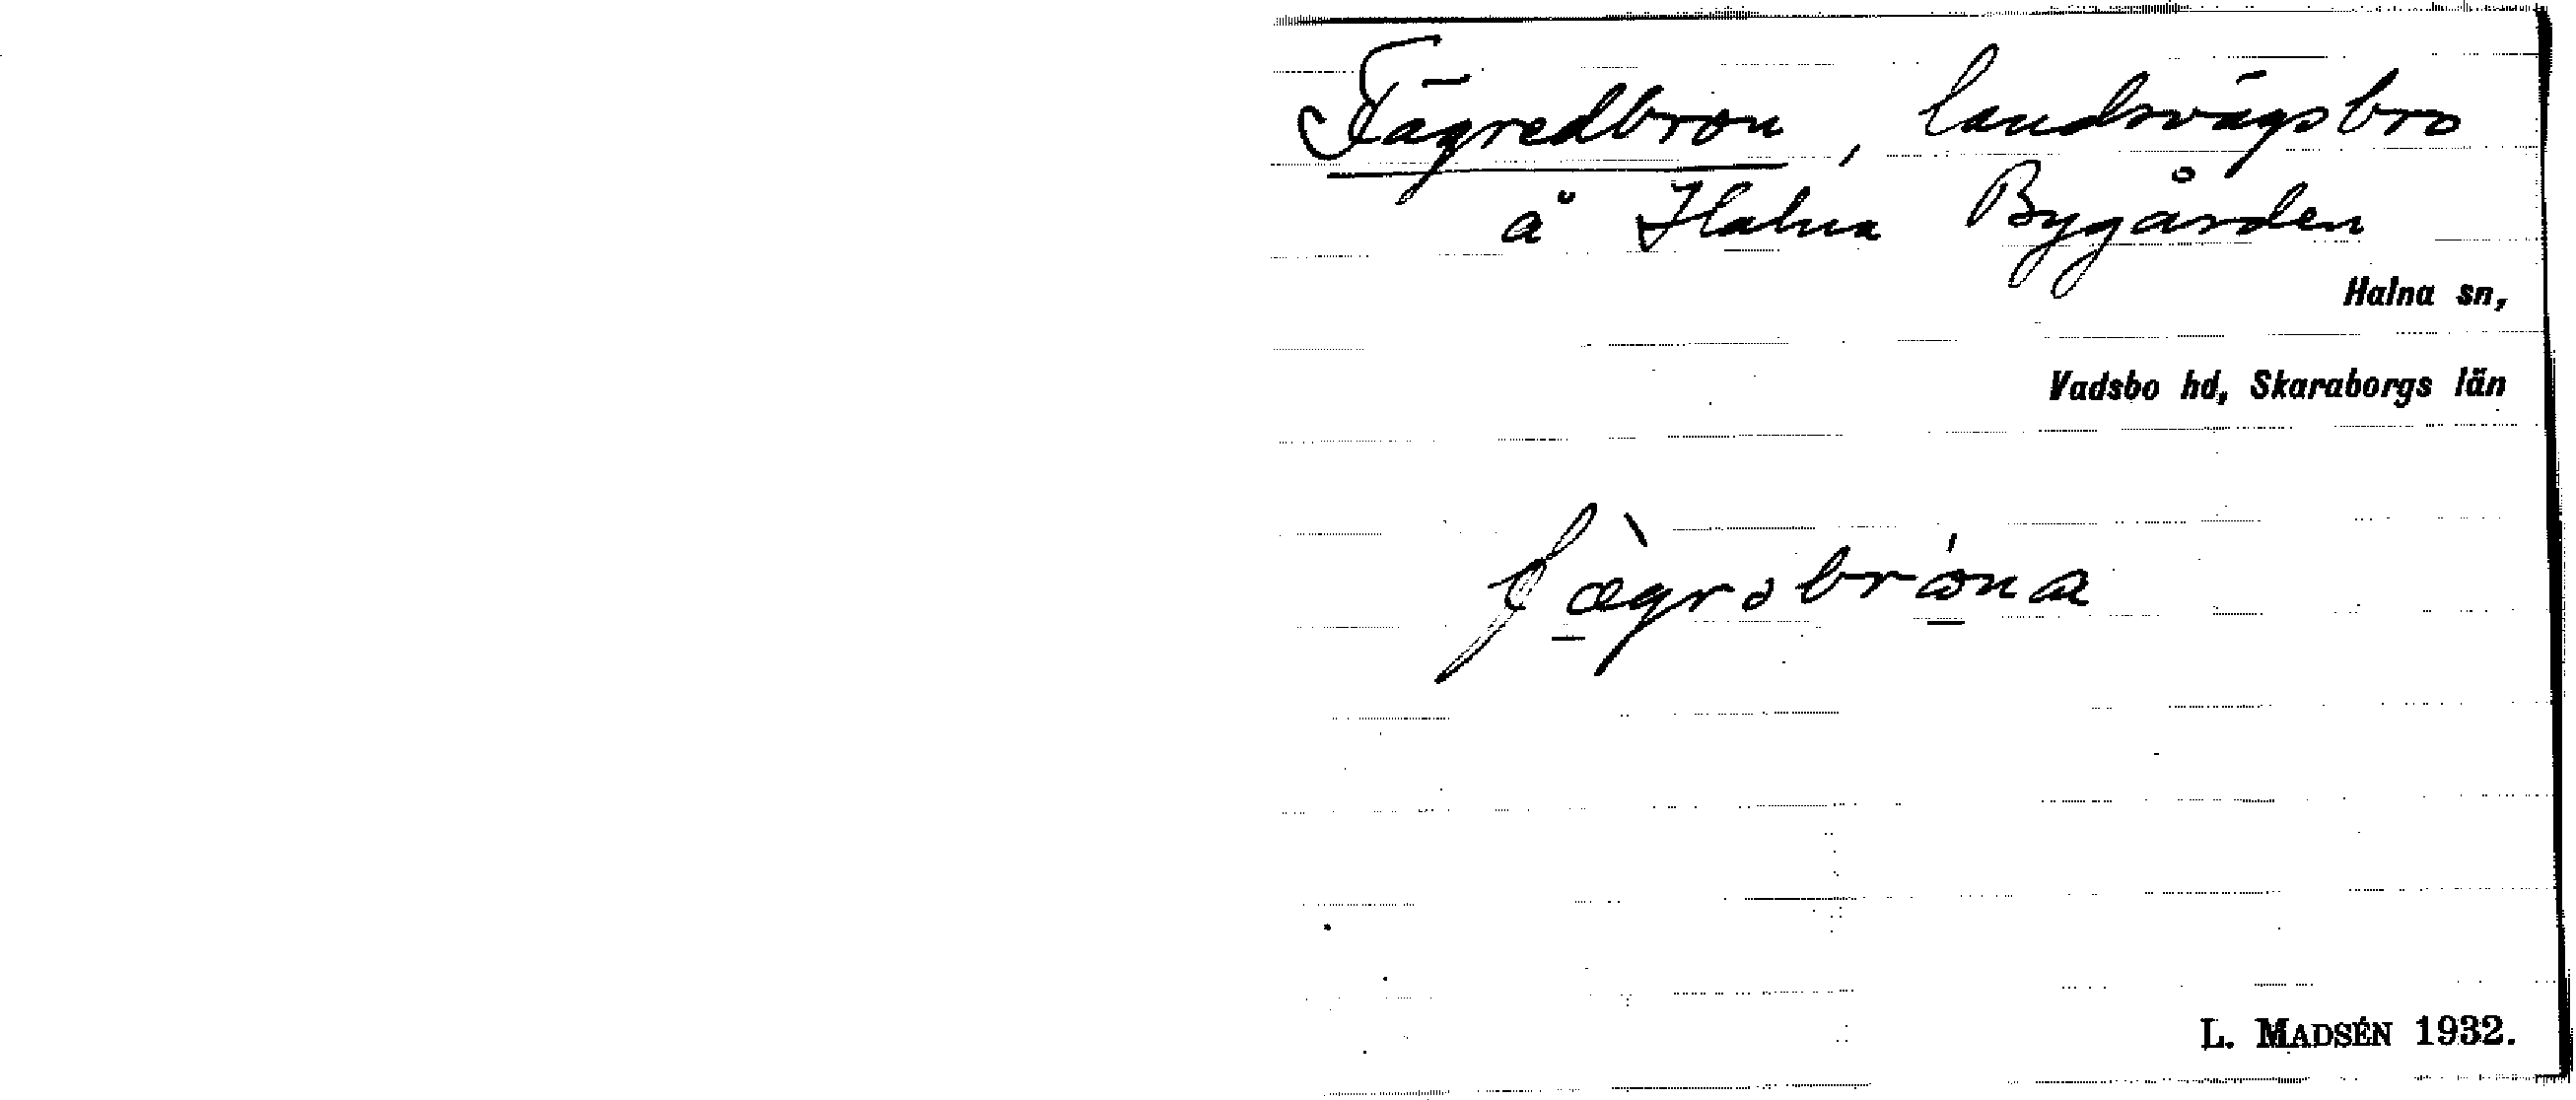 Fägredbron, landsvägsbro
å Halna Bygården
Halna sn,
Vadsbo hd, Skaraborgs län
fæ̀grəbróna
L. MADSÉN 1932.